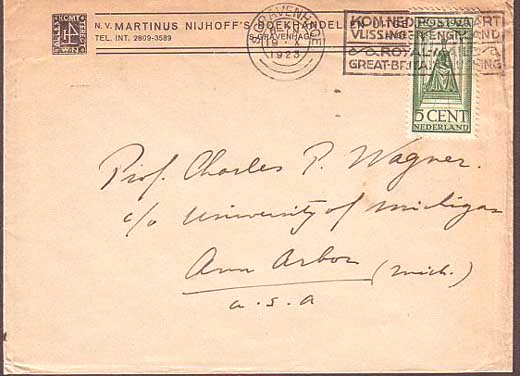 N. V. MARTINUS NIJHOFF'S BOEKHANDEL
TEL. INT. 2809-3589
'S GRAVENHAGE
19 X
1923
VLISSINGEN ENGELAND
ROYAL MAIL
GREAT-BRITAIN
5 CENT
NEDERLAND
Prof. Charles P. Wagner.
c/o University of Michigan
Ann Arbor (Mich.)
U.S.A